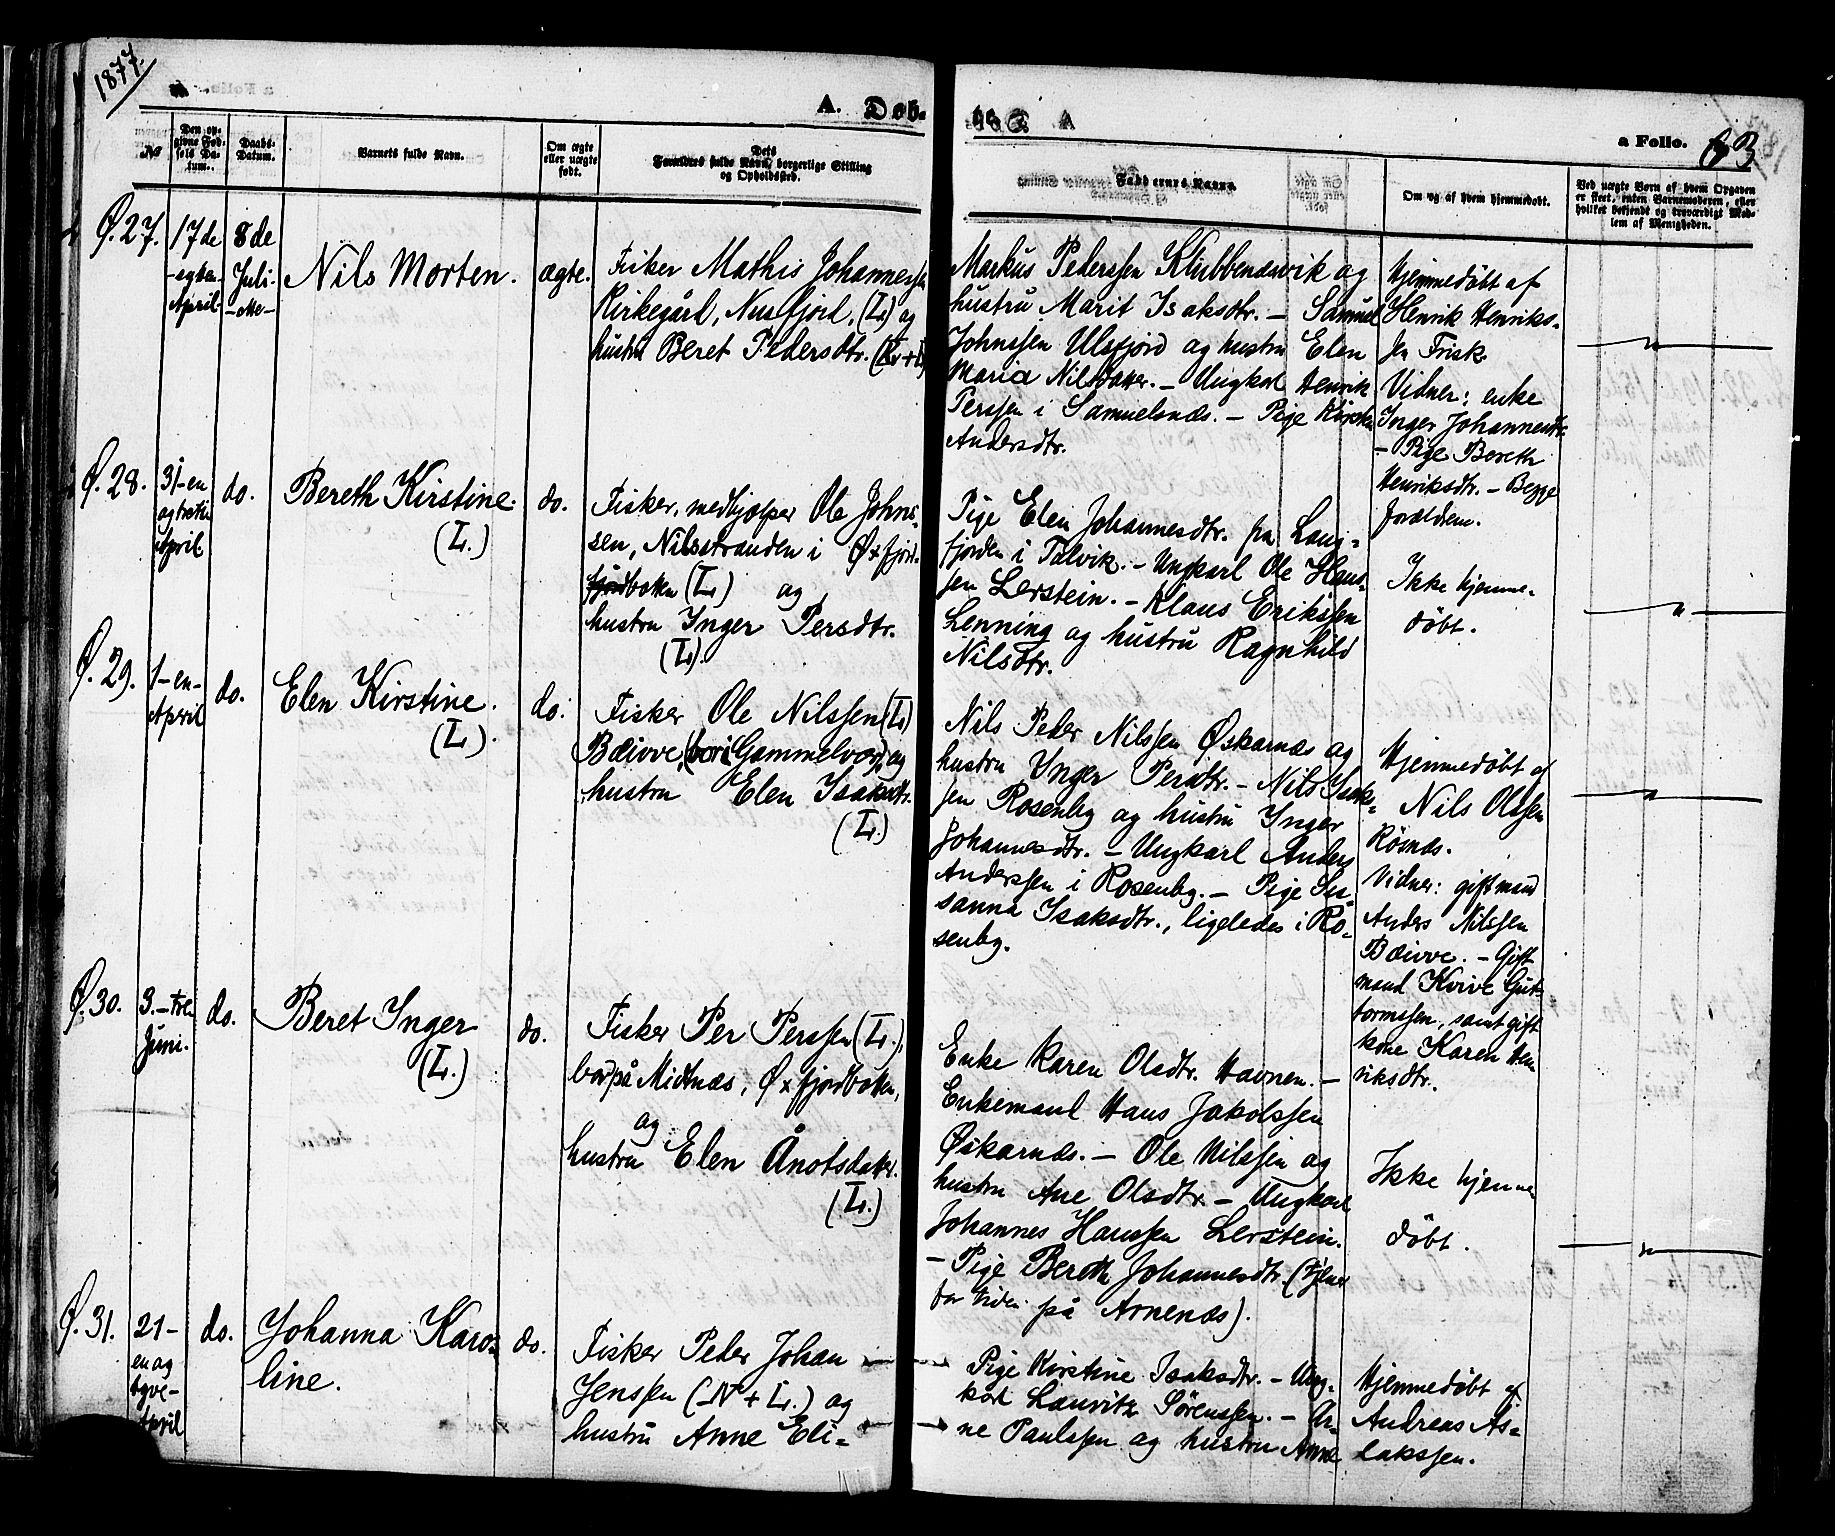 1877.
A. Døb-
te. A
a Folio. 63
No
Den op-
givne Fød-
sels Da-
tum.
Daabs-
Datum.
Barnets fulde Navn.
Om ægte
eller uægte
født.
Dets
Forældres fulde Navn, borgerlige Stilling
og Opholdssted.
Faddernes Navne.
Om og af hvem hjemmedøbt.
Ved uægte Børn af hvem Opgaven
er skeet, enten Barnemoderen, eller
hvilket bekjendt og troværdigt Med-
lem af Menigheden.
Ø.27.
17de
April
8de
Juli
Nils Morten.
ægte.
Fisker Mathis Johannessen
Kirkegård, Nusfjord, (L) og
hustru Beret Pedersdtr.
Markus Pederssen Klubbendsvik og
hustru Marit Isaksdtr. – Samuel
Johnssen Ulsfjord og hustru Elen
Maria Nilsdatter. – Ungkarl Henrik
Perssen i Samuelsnæs. – Pige
Andersdtr.
Hjemmedøbt af
Henrik Henriks-
sen Frisk
Vidner: enke
Inger Johannesdtr.
– Pige Bereth
Henriksdtr. – Begge
forældrene.
Ø.28.
31-en
April
do.
Bereth Kirstine.
(L.)
do.
Fisker, medhjælper Ole Johns-
sen, Nilsstranden i Øxfjord-
botten (L.) og
hustru Inger Persdtr.
(L).
Pige Elen Johannesdtr. fra Lang-
fjorden i Talvik. – Ungkarl Ole Hans-
sen Lerstein. – Klaus Erikssen
Lenning og hustru Ragnhild
Nilsdtr.
Ikke hjemme-
døbt.
Ø.29.
1-en-
April
do.
Elen Kirstine.
(L).
do.
Fisker Ole Nilssen (L)
Bæivve, (bor i Gammelvær), og
hustru Elen Isaksdtr.
(L.)
Nils Peder Nilssen Øskarnæs og
hustru Inger Persdtr. – Nils Isak-
sen Rosenbg og hustru Inger
Johannesdtr. – Ungkarl Anders
Anderssen i Rosenbg. – Pige Su-
sanna Isaksdtr., ligeledes i Ro-
senbg.
Hjemmedøbt af
Nils Olssen
Rösnæs.
Vidner: giftmand
Anders Nilssen
Bæivve. – Gift
mand Kvive Gut-
tormssen, samt gift
kone Karen Hen
riksdtr.
Ø.30.
3.-tre
Juni.
do.
Beret Inger
(L.)
do.
Fisker Per Perssen (L.),
bor på Midtnæs, Øxfjordbotten,
og
hustru Elen Ånotsdatter.
(L.)
Enke Karen Olsdtr. Havnen. –
Enkemand Hans Jakobssen
Øskarnæs. – Ole Nilssen og
hustru Ane Olsdtr. – Ungkarl
Johannes Hanssen Lerstein.
– Pige Bereth Johannesdtr. (tjener
for tiden på Arnenæs).
Ikke hjemme
døbt.
Ø.31.
21-
en og
tyve-
April
do.
Johanna Karo-
line.
do.
Fisker Peder Johan
Jenssen (N + L.) og
hustru Anne Eli-
Pige Kirstine Isaksdtr. – Ung-
karl Lauritz Sörenssen. – Ar-
ne Paulssen og hustru Anne
Hjemmedøbt af
Andreas As-
lakssen.